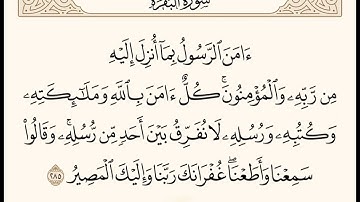 سُورَةُ البَقَرَةِ
ءَامَنَ ٱلرَّسُولُ بِمَآ أُنزِلَ إِلَيْهِ
مِن رَّبِّهِۦ وَٱلْمُؤْمِنُونَۚ كُلٌّ ءَامَنَ بِٱللَّهِ وَمَلَٰٓئِكَتِهِۦ
وَكُتُبِهِۦ وَرُسُلِهِۦ لَا نُفَرِّقُ بَيْنَ أَحَدٍ مِّن رُّسُلِهِۦۚ وَقَالُوا۟
سَمِعْنَا وَأَطَعْنَاۖ غُفْرَانَكَ رَبَّنَا وَإِلَيْكَ ٱلْمَصِيرُ ٢٨٥